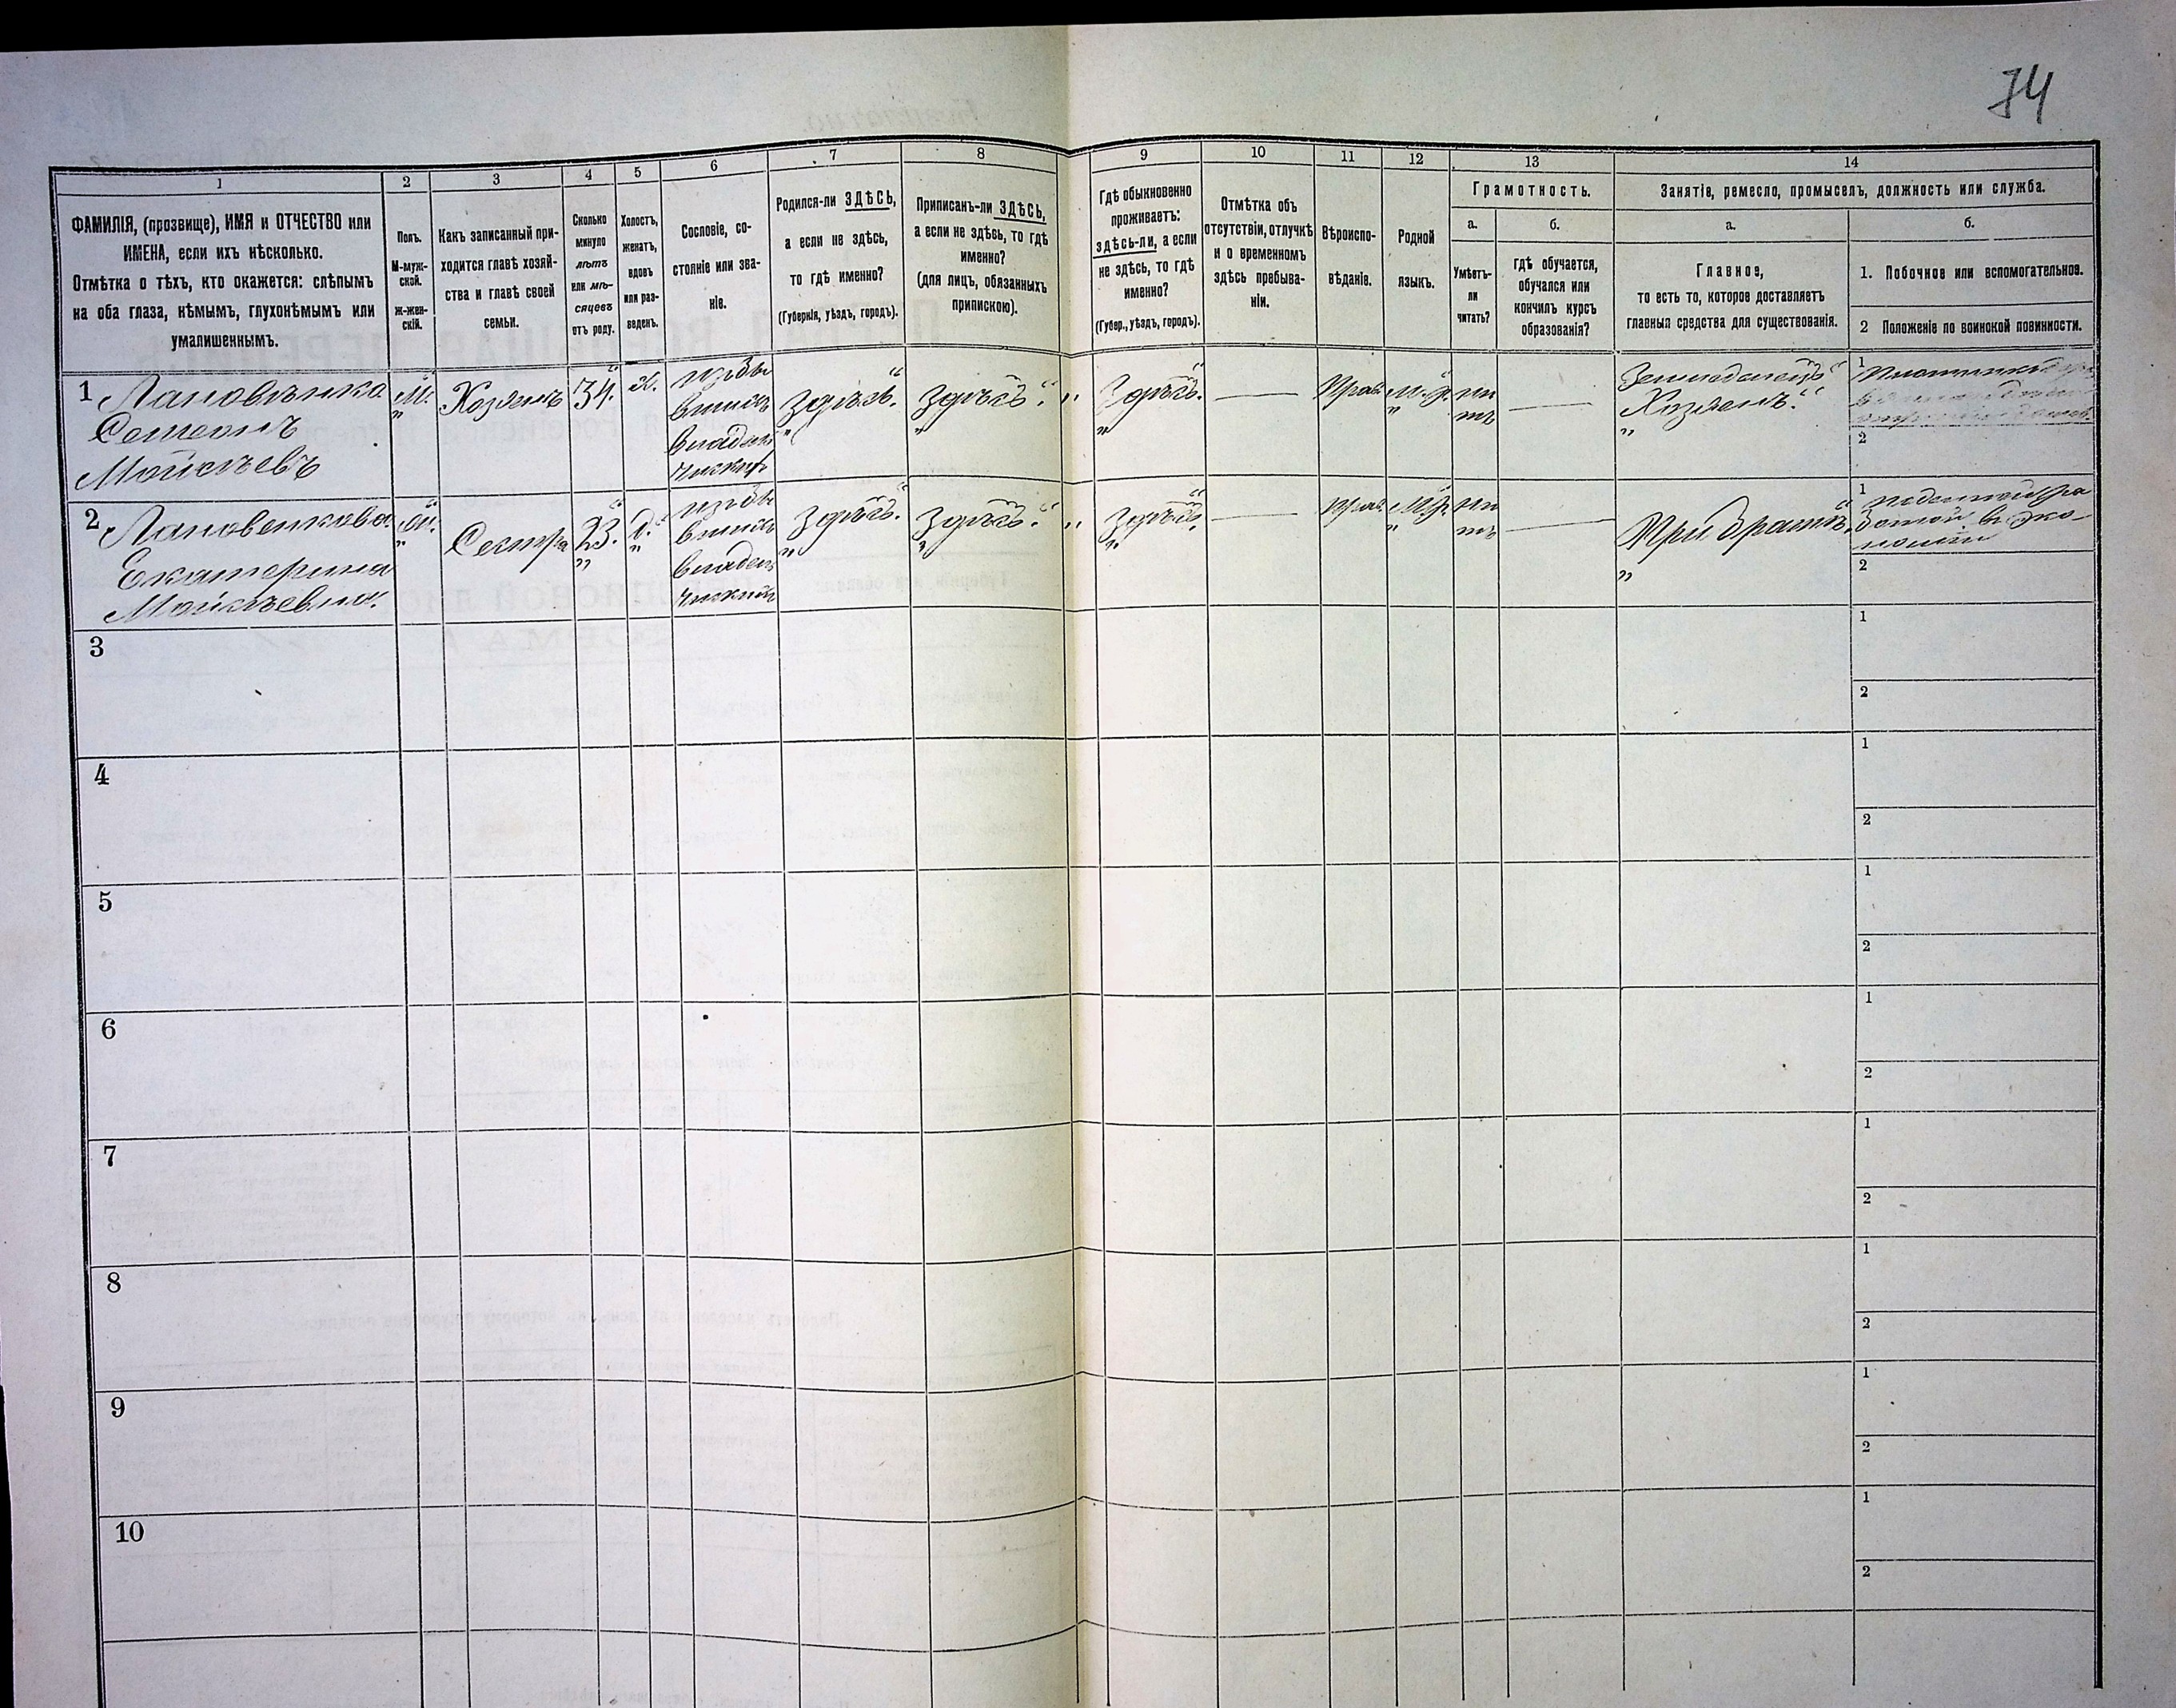 74
1
2
3
4
5
6
7
8
9
10
11
12
13
14
ФАМИЛІЯ, (прозвище), ИМЯ и ОТЧЕСТВО или
ИМЕНА, если ихъ нѣсколько.
Отмѣтка о тѣхъ, кто окажется: слѣпымъ
на оба глаза, нѣмымъ, глухонѣмымъ или
умалишеннымъ.
Полъ.
М-муж-
ской.
ж-жен-
скій.
Какъ записанный при-
ходится главѣ хозяй-
ства и главѣ своей
семьи.
Сколько
минуло
лѣтъ
или мѣ-
сяцевъ
отъ роду.
Холостъ,
женатъ,
вдовъ
или раз-
веденъ.
Сословіе, со-
стояніе или зва-
ніе.
Родился-ли ЗДѢСЬ,
а если не здѣсь,
то гдѣ именно?
(Губернія, уѣздъ, городъ).
Приписанъ-ли ЗДѢСЬ,
а если не здѣсь, то гдѣ
именно?
(для лицъ, обязанныхъ
припискою).
Гдѣ обыкновенно
проживаетъ:
здѣсь-ли, а если
не здѣсь, то гдѣ
именно?
(Губер., уѣздъ, городъ).
Отмѣтка объ
отсутствіи, отлучкѣ
и о временномъ
здѣсь пребыва-
ніи.
Вѣроиспо-
вѣданіе.
Родной
языкъ.
Грамотность.
а.
б.
Умѣетъ-
ли
читать?
гдѣ обучается,
обучался или
кончилъ курсъ
образованія?
Занятіе, ремесло, промыселъ, должность или служба.
а.
б.
Главное,
то есть то, которое доставляетъ
главныя средства для существованія.
1. Побочное или вспомогательное.
2 Положеніе по воинской повинности.
1 Лановѣнко
Семеонъ
Мойсѣевъ
М.
Хозяинъ
34.
Х.
изъбы
вшихъ
владель
ческих
Здѣсь.
Здѣсь.
Здѣсь.
Прав.
М.р.
ни
тъ
Земледелецъ
Хозяинъ.
1
2
2 Лановенкова
Екатерина
Мойсѣевна.
Ж.
Сестра
23.
Д.
изъбы
вшихъ
владель
ческихъ
Здѣсь.
Здѣсь.
Здѣсь.
Прав.
М.р.
ни
тъ
При братѣ.
1 поденной ра
ботой въ эко-
номіи
2
3
1
2
4
1
2
5
1
2
6
1
2
7
1
2
8
1
2
9
1
2
10
1
2